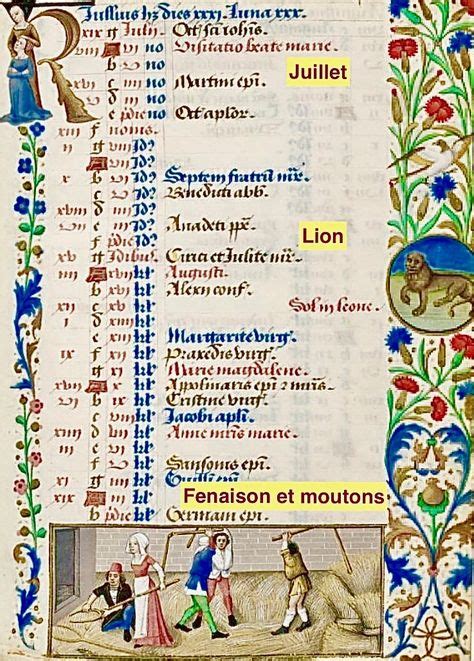 Julius hz dies xxxi. Luna xxx.
xix g Julii. Oct. sci iohis.
viii A vi no Visitatio beate marie.
b v no
xvi c iiii no Martini epi.
v d iii no
e pdie no Oct. aplor.
xiii f nonis.
ii g viii Id9
A vii Id9
x b vi Id9 Septem fratru mr.
c v Id9 Benedicti abb.
xviii d iiii Id9
vii e iii Id9 Anacleti pp.
f pdie Id9
xv g Idibus Cirici et Julite mr.
iiii A xvii kl Augusti.
b xvi kl Alexii conf.
xii c xv kl Sol in leone.
i d xiiii kl
e xiii kl Margarite virg.
ix f xii kl Praxedis virg.
g xi kl Marie magdalene.
xvii A x kl Appolinaris epi
vi b ix kl Cristine virg.
c viii kl Jacobi apli.
xiiii d vii kl Anne mris marie.
iii e vi kl
f v kl Sansonis epi.
xi g iiii kl
xix A iii kl
b pdie kl Germani epi.
Juillet
Lion
Fenaison et moutons